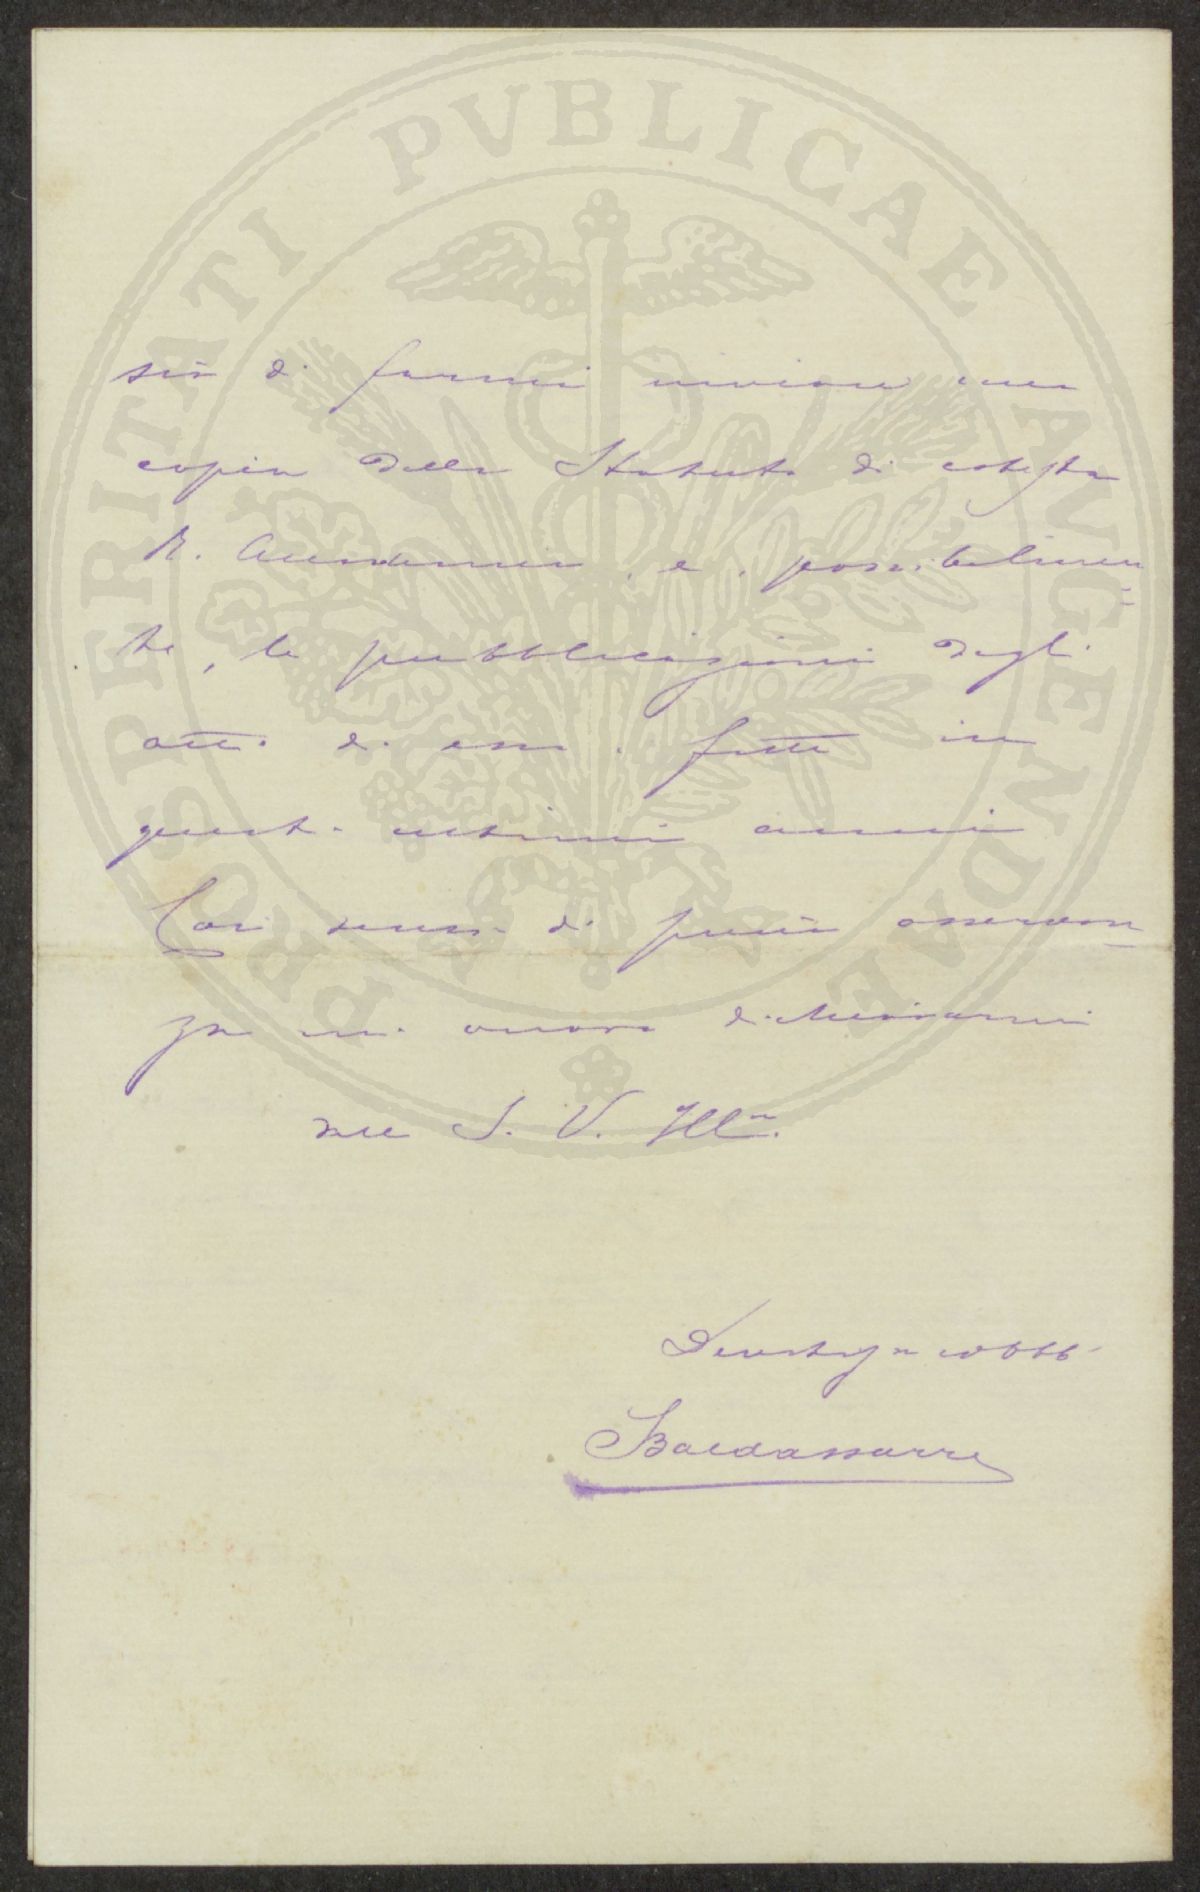 sia di farmi inviare una
copia dello Statuto di cotesta
R. Accademia, e, possibilmen=
te, le pubblicazioni degli
atti di essa fatte in
questi ultimi anni
Coi sensi di piena osservan=
za mi onoro dichiararmi
della S. V. Ill.ma
Devotiss.mo obbl.
Baldassarre
PROSPERITATI PVBLICAE AVGENDAE